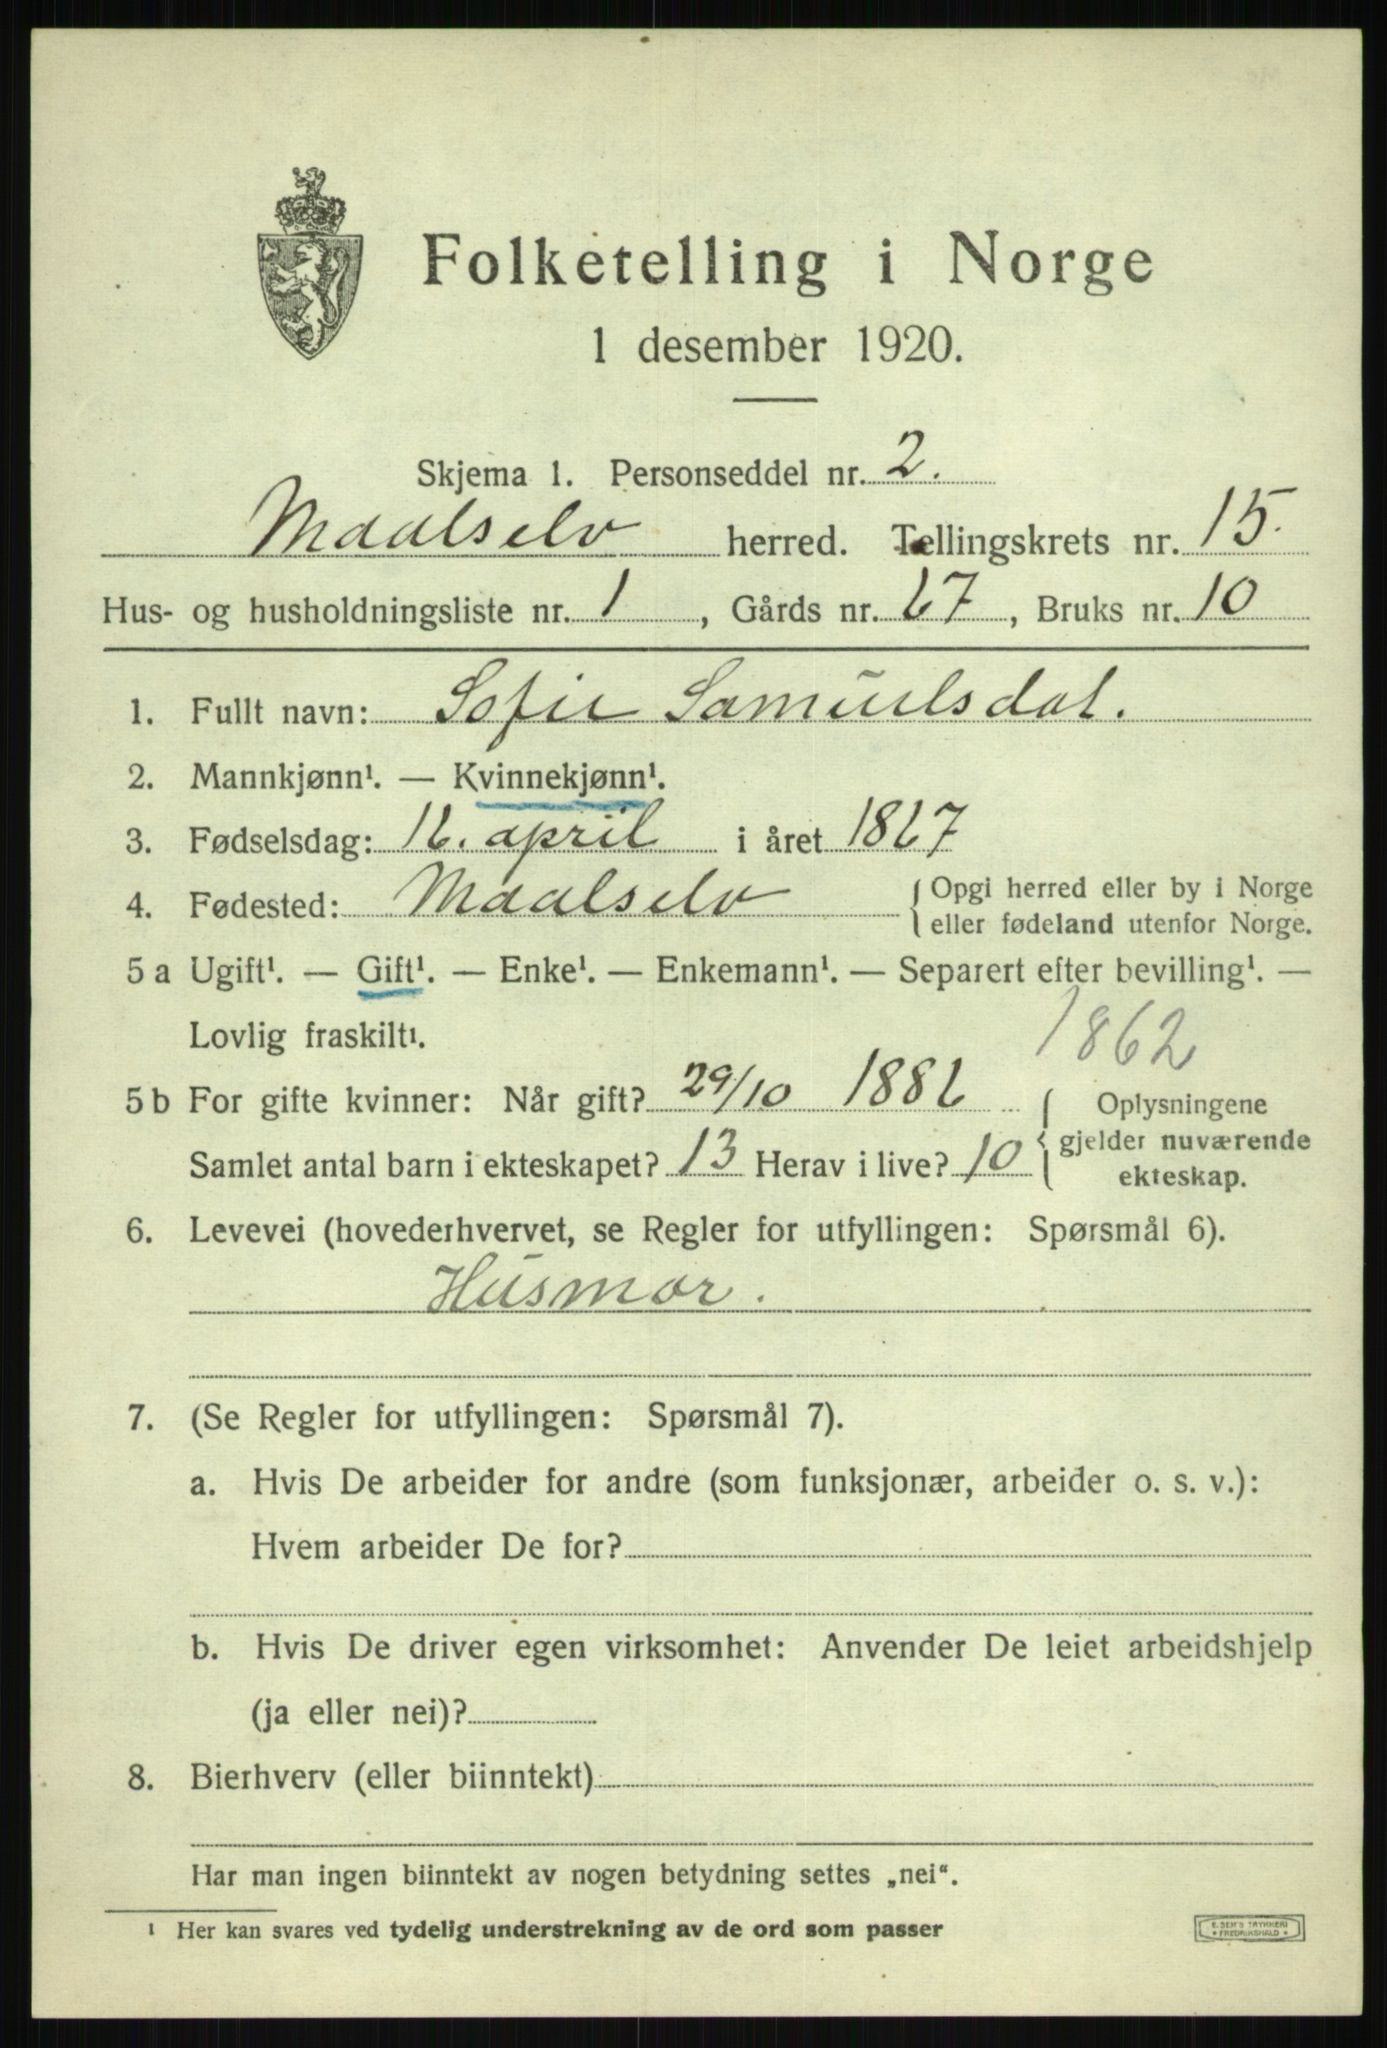 Folketelling i Norge
1 desember 1920.
Skjema 1. Personseddel nr. 2.
Maalselv herred. Tellingskrets nr. 15.
Hus- og husholdningsliste nr. 1, Gårds nr. 67, Bruks nr. 10
1. Fullt navn: Sofie Samuelsdat.
2. Mannkjønn¹. — Kvinnekjønn¹.
3. Fødselsdag: 16. april i året 1867
4. Fødested: Maalselv { Opgi herred eller by i Norge
eller fødeland utenfor Norge.
5 a Ugift¹. — Gift¹. — Enke¹. — Enkemann¹. — Separert efter bevilling¹. —
Lovlig fraskilt¹.
1862
5 b For gifte kvinner: Når gift? 29/10 1886 { Oplysningene
gjelder nuværende
Samlet antal barn i ekteskapet? 13 Herav i live? 10
ekteskap.
6. Levevei (hovederhvervet, se Regler for utfyllingen: Spørsmål 6).
Husmor.
7. (Se Regler for utfyllingen: Spørsmål 7).
a. Hvis De arbeider for andre (som funksjonær, arbeider o. s. v.):
Hvem arbeider De for?
b. Hvis De driver egen virksomhet: Anvender De leiet arbeidshjelp
(ja eller nei)?
8. Bierhverv (eller biinntekt)
Har man ingen biinntekt av nogen betydning settes „nei“.
¹ Her kan svares ved tydelig understrekning av de ord som passer
E. SEM'S TRYKKERI
* FREDRIKSHALD *